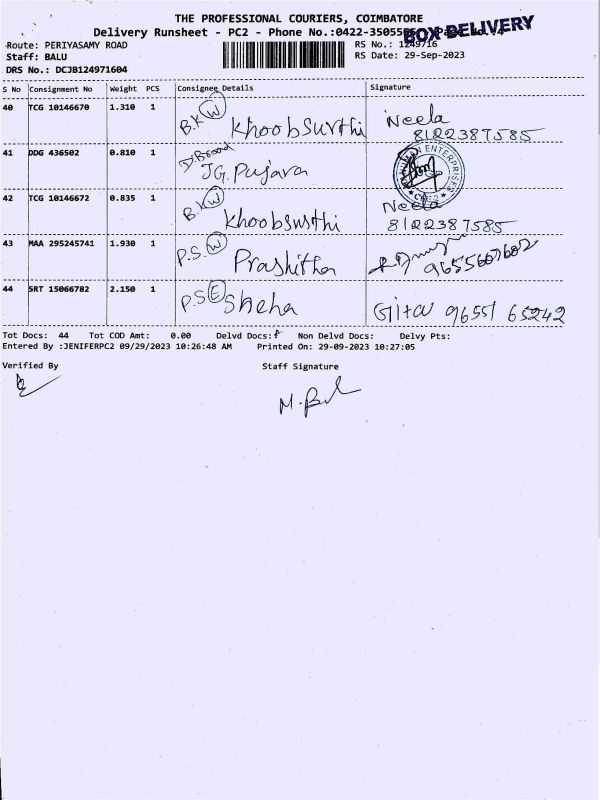 THE PROFESSIONAL COURIERS, COIMBATORE
Delivery Runsheet - PC2 - Phone No.:0422-3505
BOX DELIVERY
Route: PERIYASAMY ROAD
RS No.: 1249716
Staff: BALU
RS Date: 29-Sep-2023
DRS No.: DCJB124971604
S No Consignment No Weight PCS Consignee Details Signature
40 TCG 10146670 1.310 1 B.K W Khoobsurthi Neela
8122387585
41 DDG 436502 0.810 1 D.Broad
J.G. Pujara ENTERPRISES
42 TCG 10146672 0.835 1 B.K W Khoobsusthi Neela
8122387585
43 MAA 295245741 1.930 1 P.S. W Prashitha
9655607602
44 SRT 15066782 2.150 1 P.S E Sheha Gita 96551 65242
Tot Docs: 44 Tot COD Amt: 0.00 Delvd Docs: Non Delvd Docs: Delvy Pts:
Entered By :JENIFERPC2 09/29/2023 10:26:48 AM Printed On: 29-09-2023 10:27:05
Verified By Staff Signature